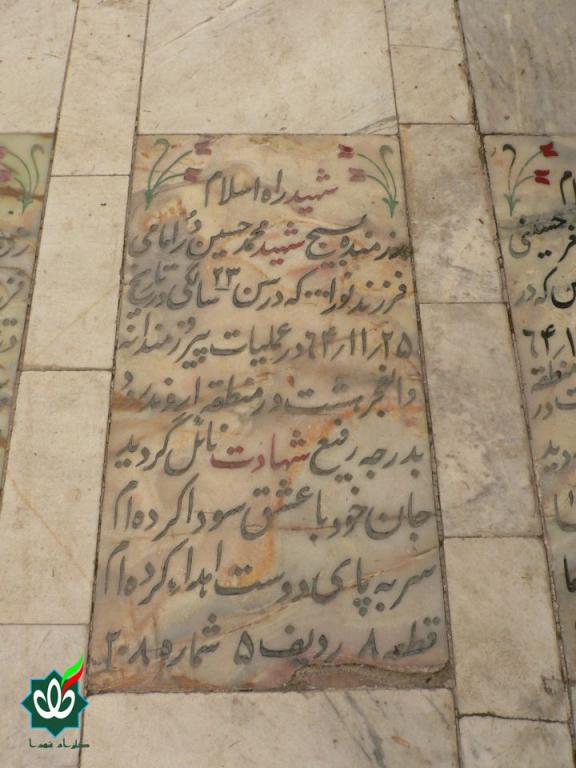 شهید راه اسلام
رزمنده بسیج شهید محمد حسین دُرامامی
فرزند نورا... که در سن ۲۳ سالگی در تاریخ
۲۵/۱۱/۶۴ در عملیات پیروزمندانه
والفجر هشت در منطقه اروندرود
بدرجه رفیع شهادت نائل گردید
جان خود با عشق سودا کرده ام
سر به پای دوست اهداء کرده ام
قطعه ۸ ردیف ۵ شماره ۲۰۸۰
گلزار شهدا